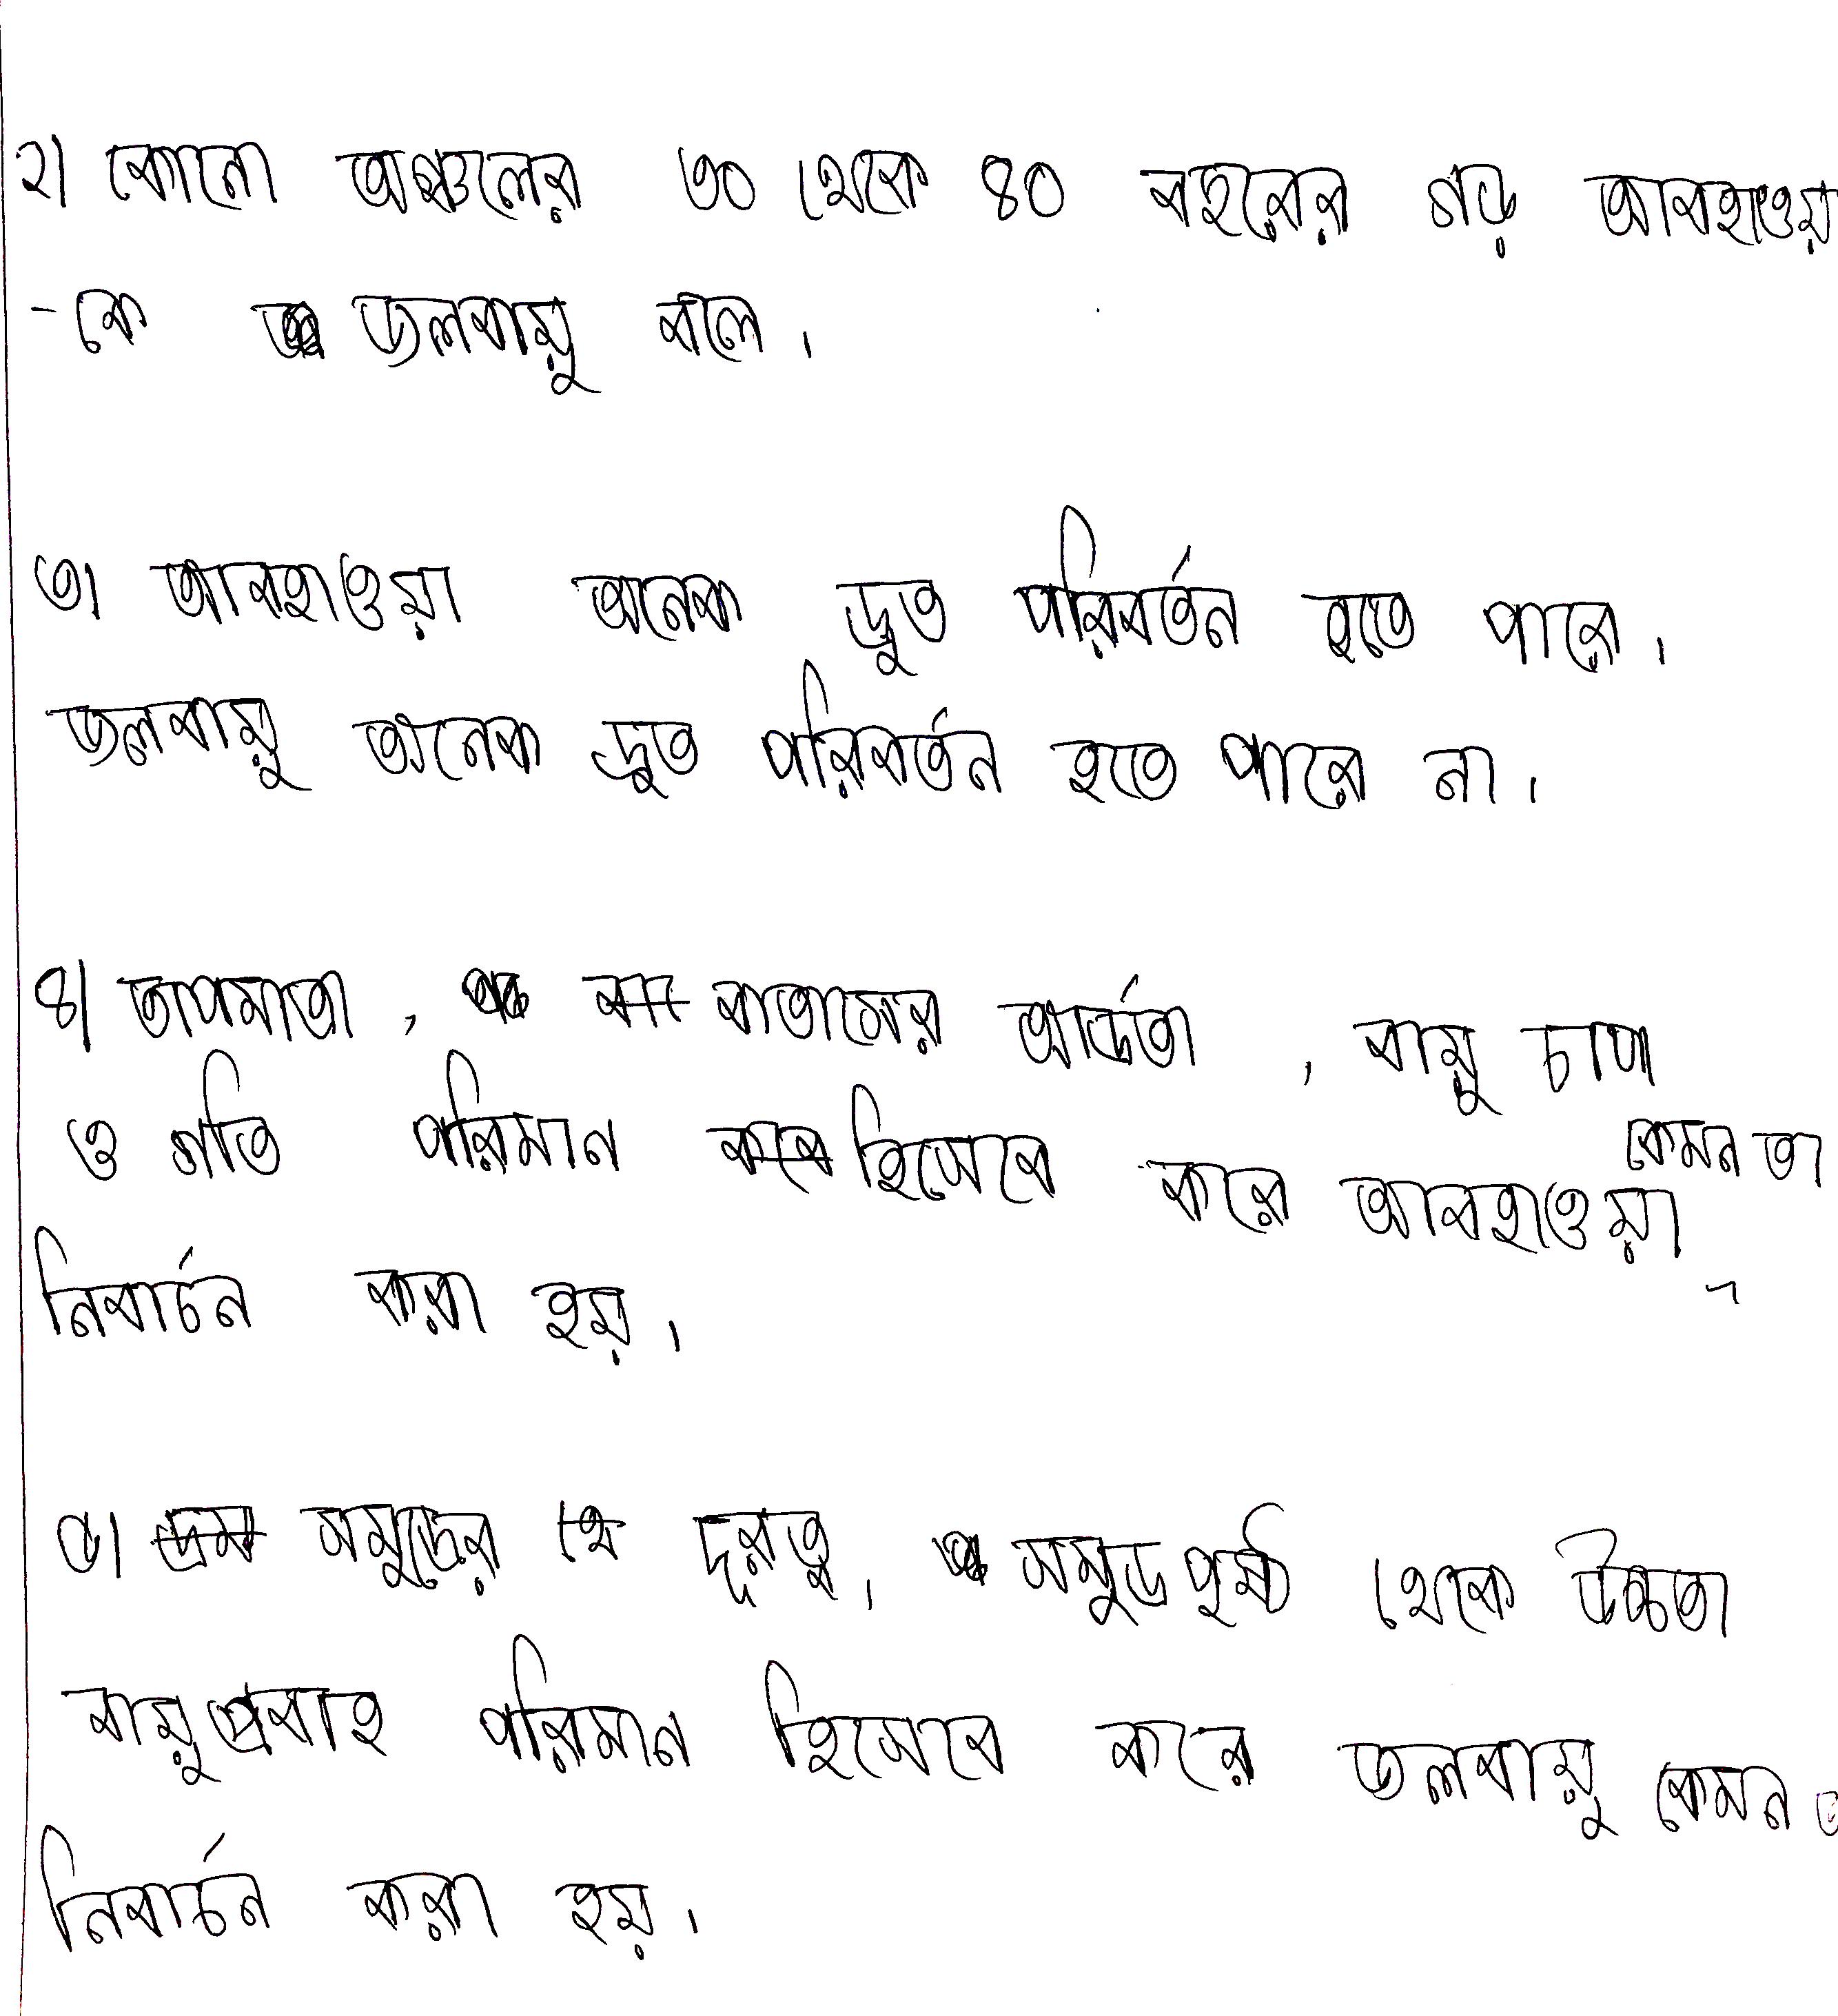 ২। কোনো অঞ্চলের ৩০ থেকে ৪০ বছরের গড় আবহাওয়
-কে জলবায়ু বলে।
৩। আবহাওয়া অনেক দ্রুত পরিবর্তন হতে পারে।
জলবায়ু অনেক দ্রুত পরিবর্তন হতে পারে না।
৪। তাপমাত্রা, বাতাসের আর্দ্রতা, বায়ু চাপ
ও গতি পরিমান হিসেবে করে আবহাওয়া কেমন তা
নির্বাচন করা হয়।
৫। সমুদ্রের থে দূরত্ব, সমুদ্রপৃষ্ঠ থেকে উচ্চতা
বায়ুপ্রবাহ পরিমান হিসেবে করে জলবায়ু কেমন
নির্বাচন করা হয়।